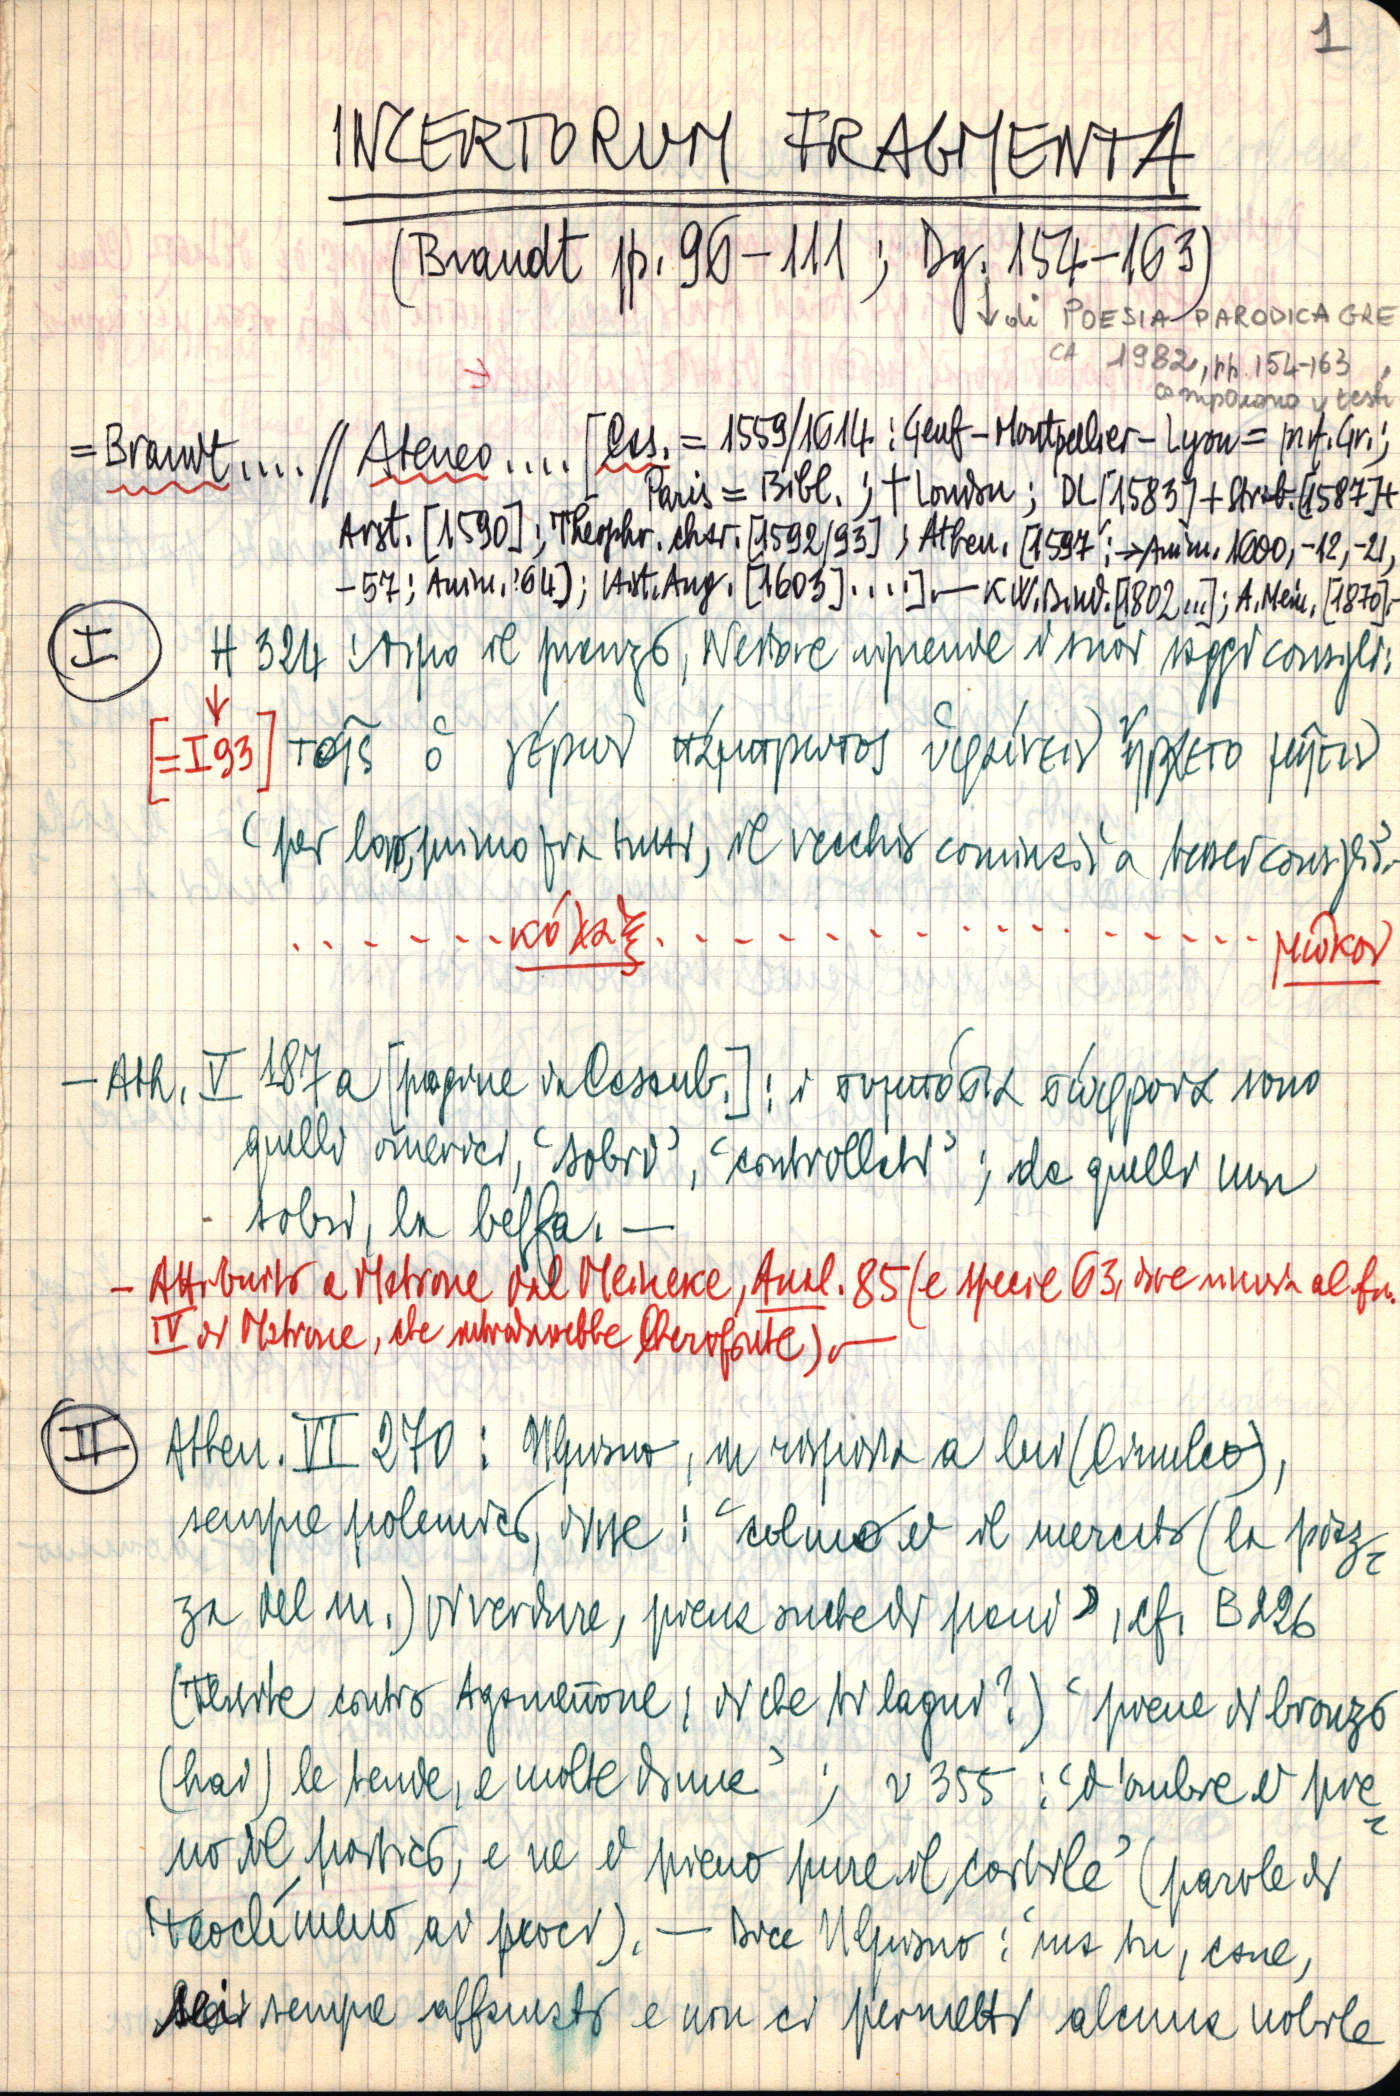 1
INCERTORUM FRAGMENTA
(Brandt pp. 96-111 ; Dg. 154-163)
↓ di POESIA PARODICA GRE
CA 1982, pp. 154-163,
compaiono i testi
= Brandt .... // Ateneo .... [Cas. = 1559/1614 : Genf - Montpellier - Lyon = prof. Gr.;
Paris = Bibl. ; † London ; DL [1583] + Strab. [1587] +
Arist. [1590] ; Theophr. char. [1592/93] ; Athen. [1597 ; → Anim. 1600, -12, -21,
-57 ; Anim. '64] ; Hist. Aug. [1603] ....]. — K.W. Dind. [1802 ...] ; A. Mein. [1870].-
I H 324 : dopo il pranzo, Nestore riprende i suoi saggi consigli:
[= I 93] τοῖς ὁ γέρων πάμπρωτος ὑφαίνειν ἤρχετο μῆτιν
'per loro, primo fra tutti, il vecchio cominciò a tesser consigli'.
κόλαξ μῶκον
- Ath. V 187 a [pagine di Casaub.] : i συμπόσια σώφρονα sono
quelli omerici, 'sobri', 'controllati' ; da quelli non
sobri, la beffa. —
- Attribuito a Matrone dal Meineke, Anal. 85 (e specie 63, dove rinvia al fr.
IV di Matrone, che introdurrebbe Cherofonte). —
II Athen. VI 270 : Ulpiano, in risposta a lui (Cinulco),
sempre polemico, disse : 'colma è il mercato (la piaz-
za del m.) di verdure, piena anche di pani', cf. B 226
(Tersite contro Agamennone ; di che ti lagni?) 'piene di bronzo
(hai) le tende, e molte donne' ; υ 355 : 'd'ombre è pie-
no il portico, e ne è pieno pure il cortile' (parole di
Teoclimeno ai proci). — Dice Ulpiano : 'ma tu, cane,
sei sempre affamato e non ci permetti alcuna nobile